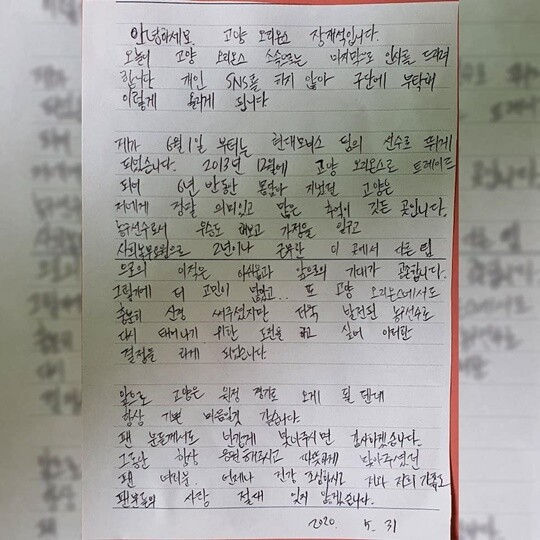 안녕하세요. 고양 오리온스 장재석입니다.
오늘이 고양 오리온스 소속으로는 마지막으로 인사를 드리려
합니다. 개인 SNS를 하지 않아 구단에 부탁해
이렇게 올리게 됩니다
제가 6월 1일 부터는 현대모비스 팀의 선수로 뛰게
되었습니다. 2013년 12월에 고양 오리온스로 트레이드
되어 6년 반동안 몸담아 지냈던 고양은
저에게 정말 의미있고 많은 추억이 깃든 곳입니다.
농구선수로서 우승도 해보고 가정을 이루고
사회복무요원으로 2년이나 근무한 이 곳에서 다른 팀
으로의 이적은 아쉬움과 앞으로의 기대가 공존합니다.
그렇기에 더 고민이 많았고.. 또 고양 오리온스에서도
충분히 신경 써주셨지만 더욱 발전된 농구선수로
다시 태어나기 위한 도전을 하고 싶어 이러한
결정을 하게 되었습니다
앞으로 고양은 원정 경기로 오게 될 텐데
항상 기쁜 마음일것 같습니다.
팬 분들께서도 반갑게 맞아주시면 감사하겠습니다.
그동안 항상 응원해주시고 따뜻하게 맞아주셨던
팬 여러분. 언제나 건강 조심하시고 저와 저희 가족도
팬분들의 사랑 절대 잊지 않겠습니다.
2020. 5. 31